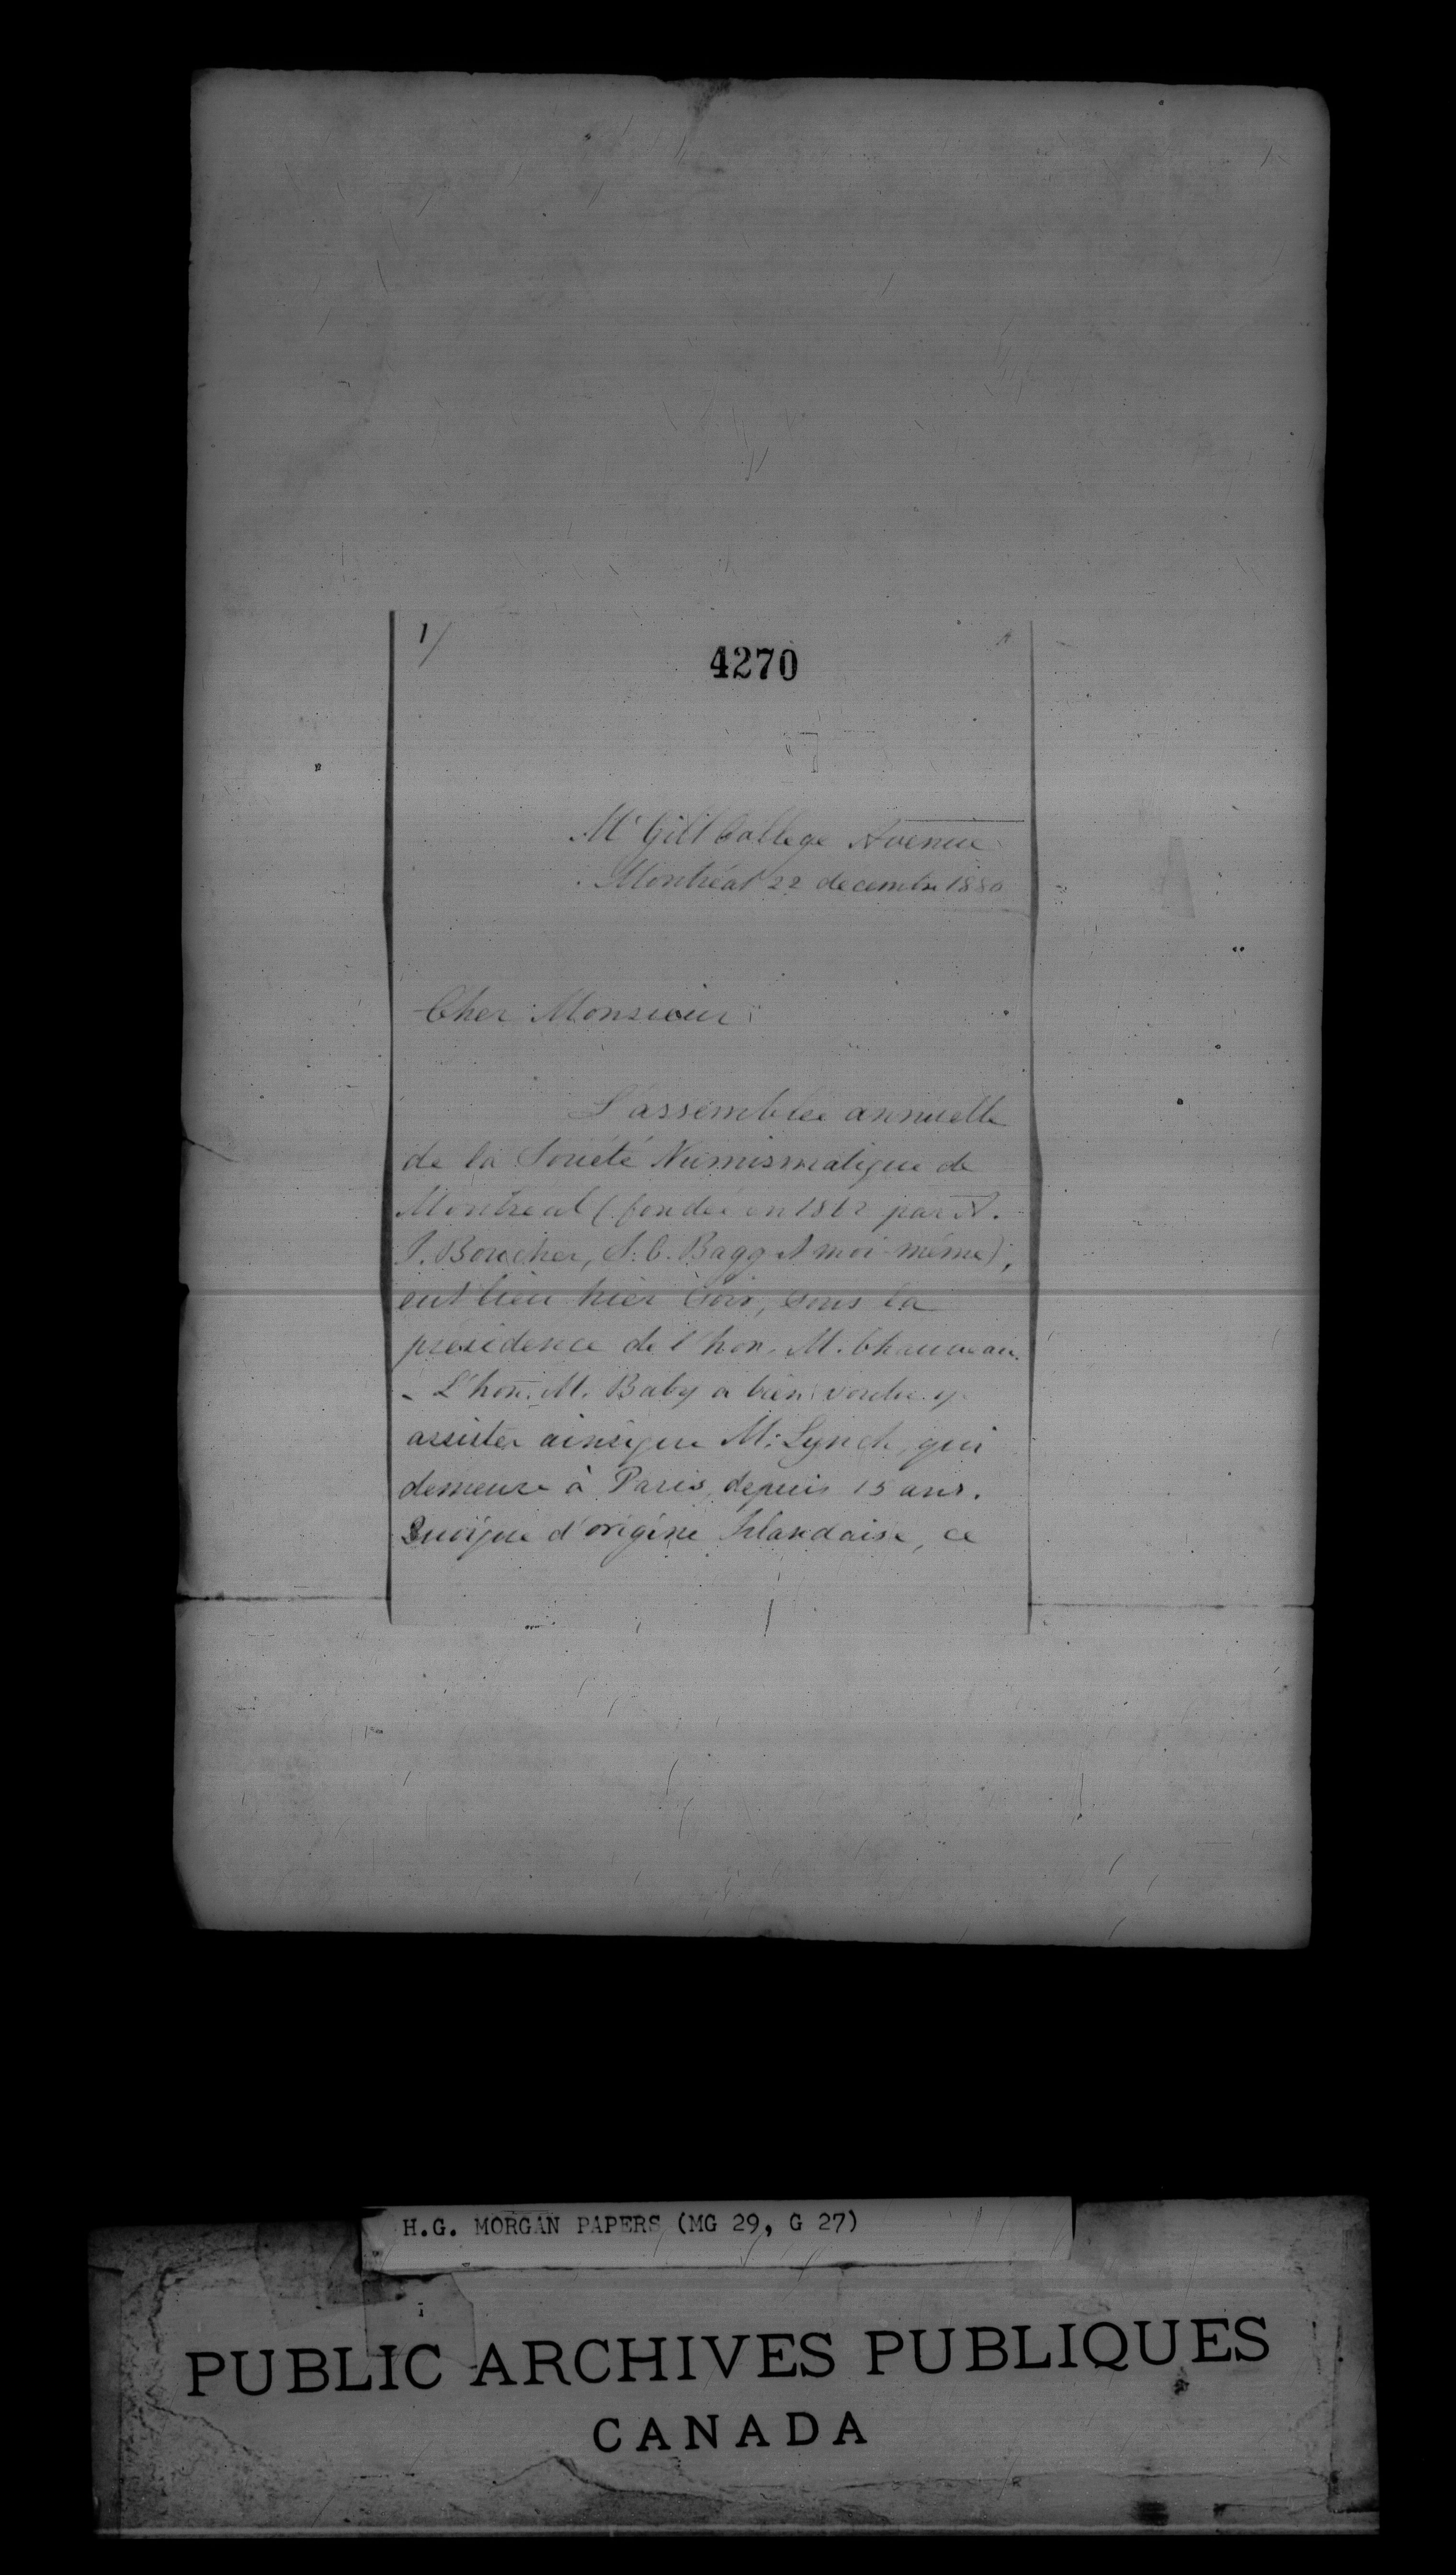 1/
4270
Mc Gill College Avenue
Montréal 22 decembre 1880
Cher Monsieur
L'assemblée annuelle
de la Société Numismatique de
Montreal (fondée en 1862 par A.
J. Boucher, S. C. Bagg et moi-même),
eut lieu hier soir, sous la
présidence de l'hon. M. Chauveau.
- L'hon. M. Baby a bien voulu y
assister ainsique M. Lynch, qui
demeure à Paris, depuis 15 ans.
Quoique d'origine Irlandaise, ce
H.G. MORGAN PAPERS (MG 29, G 27)
PUBLIC ARCHIVES PUBLIQUES
CANADA